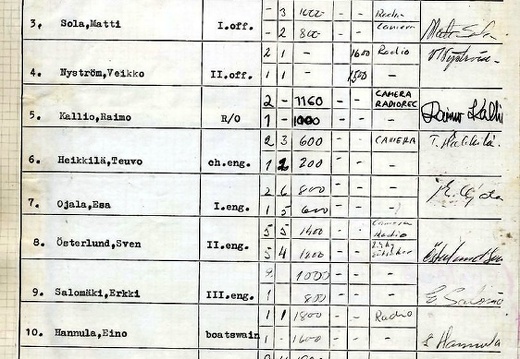 - 3 1000 - - Radio
3, Sola,Matti I.off. - 2 800 - - Camera
2 1 - 1600 Radio
4. Nyström,Veikko II.off. 1 1 - 1500 -
2 - 1160 - - CAMERA RADIOREC
5. Kallio,Raimo R/O 1 - 1000 - - - Raimo Kallio
2 3 600 - - CAMERA T. Heikkilä.
6. Heikkilä,Teuvo ch.eng. 1 2 200 - - -
2 6 800 - - -
7. Ojala,Esa I.eng. 1 5 600 - - -
5 5 1400 - - Camera Radio
8. Österlund,Sven II.eng. 5 4 1200 - -
1000 - - -
9. Salomäki,Erkki III.eng. 800 - - -
1 1 1800 - - Radio
10. Hannula,Eino boatswain 1 - 1600 - - - E Hannula